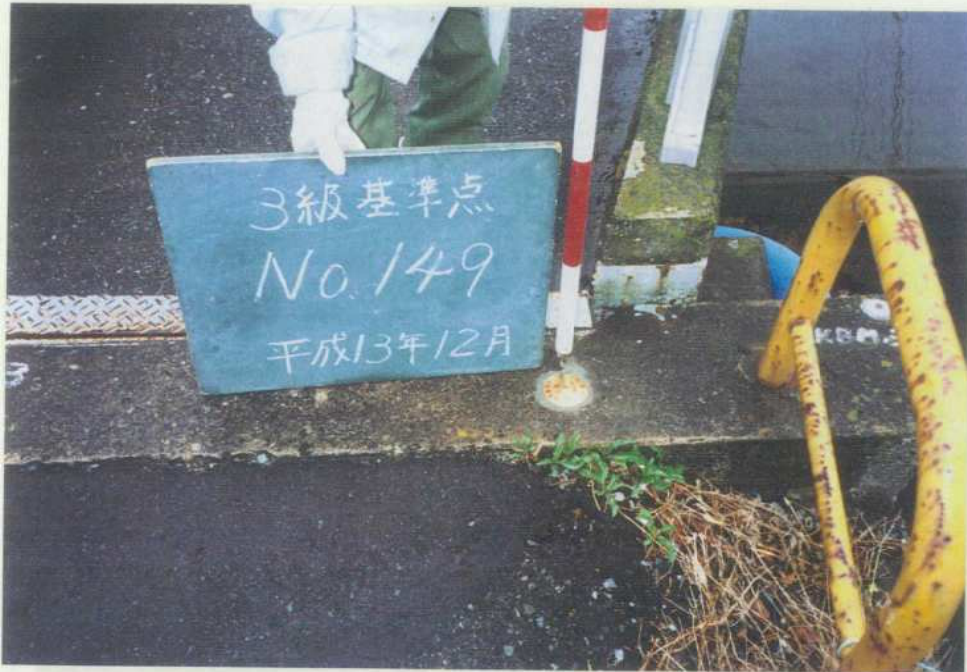 3級基準点
No.149
平成13年12月
KBM.